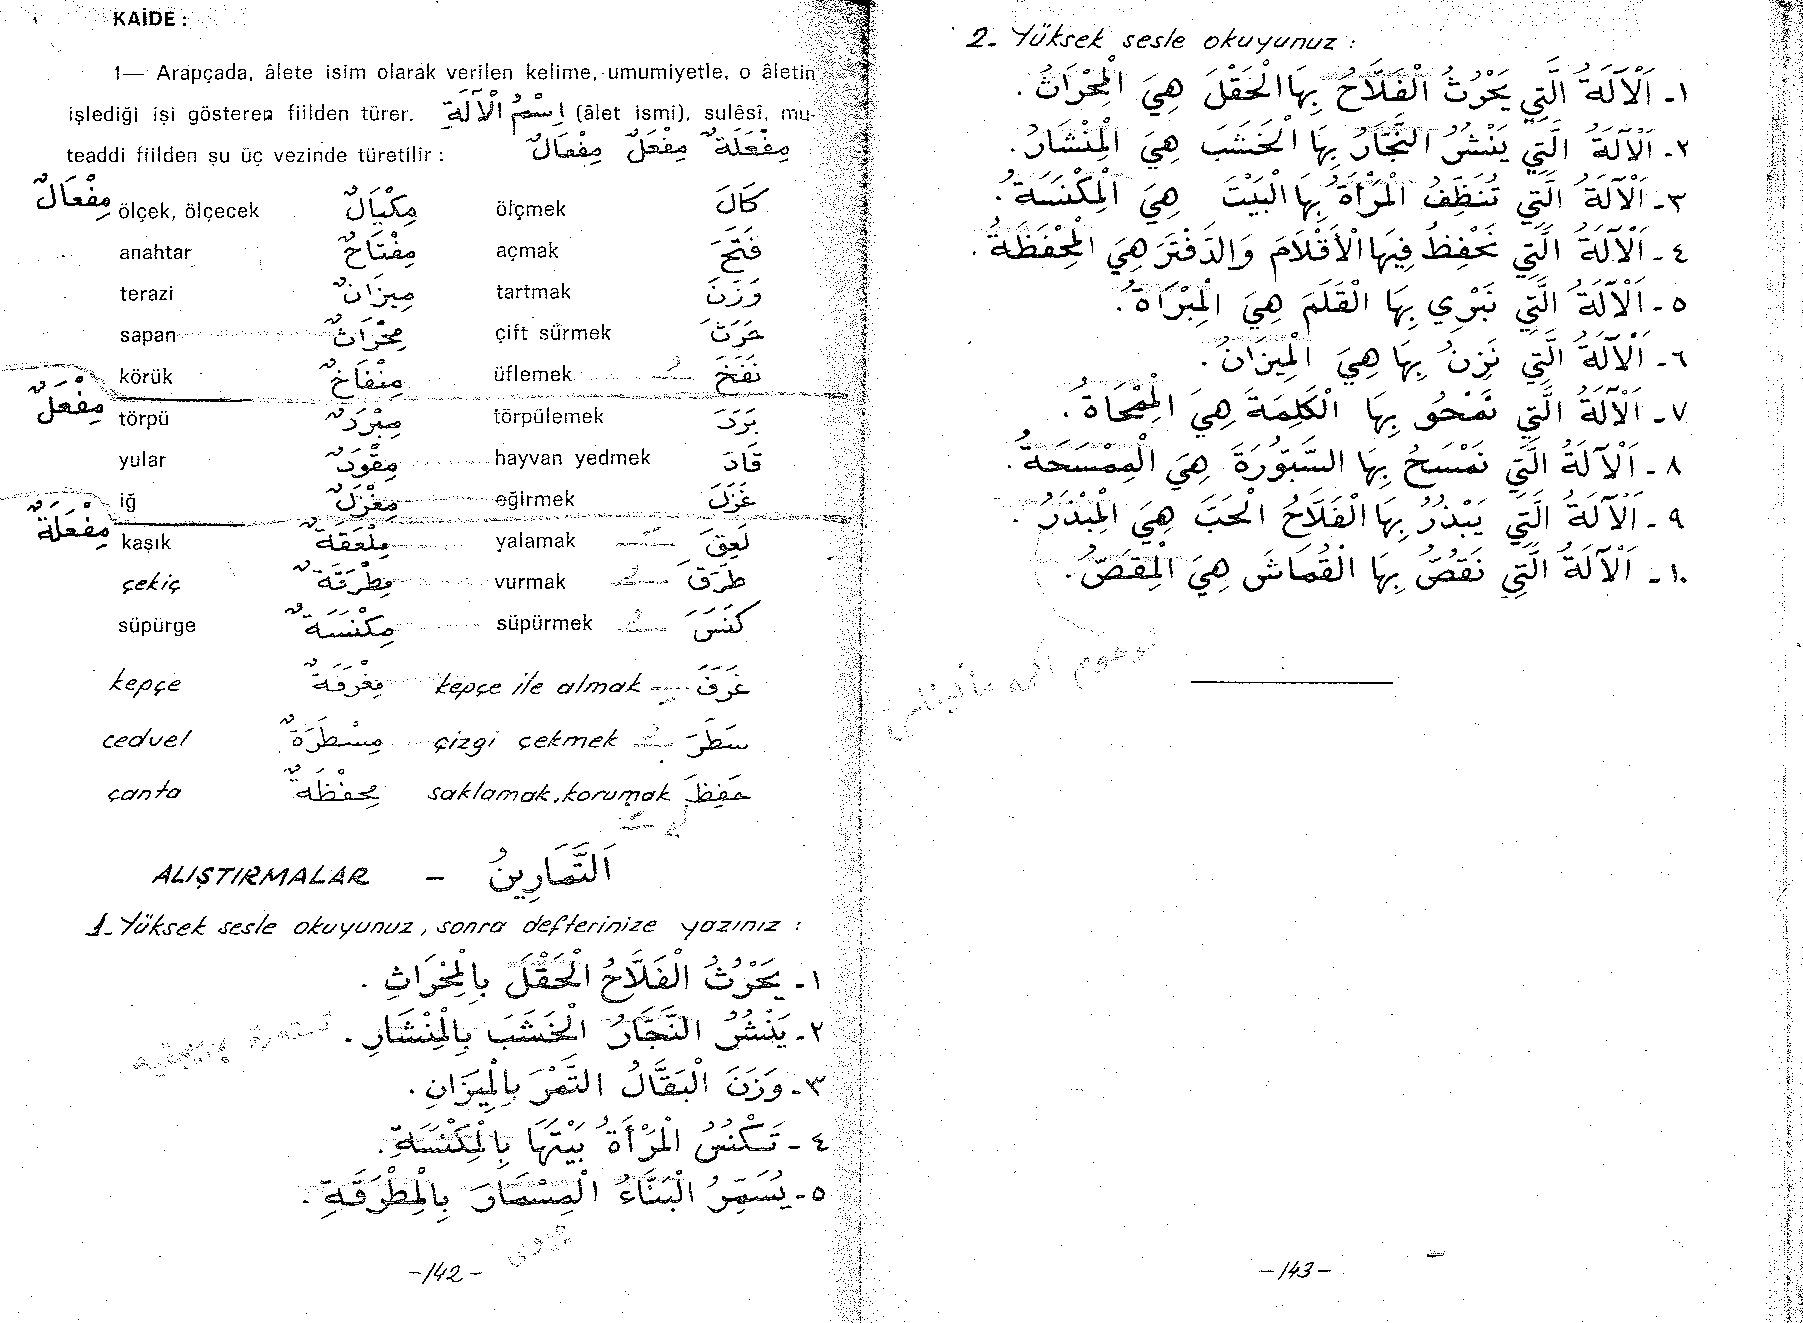 KAİDE :
1— Arapçada, âlete isim olarak verilen kelime, umumiyetle, o âletin
işlediği işi gösteren fiilden türer. اِسْمُ الْآلَةِ (âlet ismi), sulêsî, mu-
teaddi fiilden şu üç vezinde türetilir : مِفْعَلَةٌ مِفْعَلٌ مِفْعَالٌ
مِفْعَالٌ ölçek, ölçecek مِكْيَالٌ ölçmek كَالَ
anahtar مِفْتَاحٌ açmak فَتَحَ
terazi مِيزَانٌ tartmak وَزَنَ
sapan مِحْرَاثٌ çift sürmek حَرَثَ
körük مِنْفَاخٌ üflemek نَفَخَ
مِفْعَلٌ törpü مِبْرَدٌ törpülemek بَرَدَ
yular مِقْوَدٌ hayvan yedmek قَادَ
iğ مِغْزَلٌ eğirmek غَزَلَ
مِفْعَلَةٌ kaşık مِلْعَقَةٌ yalamak لَعِقَ
çekiç مِطْرَقَةٌ vurmak طَرَقَ
süpürge مِكْنَسَةٌ süpürmek كَنَسَ
kepçe مِغْرَفَةٌ kepçe ile almak غَرَفَ
cedvel مِسْطَرَةٌ çizgi çekmek سَطَرَ
çanta مِحْفَظَةٌ saklamak, korumak حَفِظَ
ALIŞTIRMALAR – اَلتَّمَارِينُ
1. Yüksek sesle okuyunuz, sonra defterinize yazınız :
١- يَحْرُثُ الْفَلَّاحُ الْحَقْلَ بِالْمِحْرَاثِ .
٢- يَنْشُرُ النَّجَّارُ الْخَشَبَ بِالْمِنْشَارِ .
٣- وَزَنَ الْبَقَّالُ التَّمْرَ بِالْمِيزَانِ .
٤- تَكْنُسُ الْمَرْأَةُ بَيْتَهَا بِالْمِكْنَسَةِ .
٥- يُسَمِّرُ الْبَنَّاءُ الْمِسْمَارَ بِالْمِطْرَقَةِ .
-142-
2- Yüksek sesle okuyunuz :
١- اَلْآلَةُ الَّتِي يَحْرُثُ الْفَلَّاحُ بِهَا الْحَقْلَ هِيَ الْمِحْرَاثُ .
٢- اَلْآلَةُ الَّتِي يَنْشُرُ النَّجَّارُ بِهَا الْخَشَبَ هِيَ الْمِنْشَارُ .
٣- اَلْآلَةُ الَّتِي تُنَظِّفُ الْمَرْأَةُ بِهَا الْبَيْتَ هِيَ الْمِكْنَسَةُ .
٤- اَلْآلَةُ الَّتِي نَحْفِظُ فِيهَا الْأَقْلَامَ وَالدَّفْتَرَ هِيَ الْمِحْفَظَةُ .
٥- اَلْآلَةُ الَّتِي نَبْرِي بِهَا الْقَلَمَ هِيَ الْمِبْرَاةُ .
٦- اَلْآلَةُ الَّتِي نَزِنُ بِهَا هِيَ الْمِيزَانُ .
٧- اَلْآلَةُ الَّتِي نَمْحُو بِهَا الْكَلِمَةَ هِيَ الْمِمْحَاةُ .
٨- اَلْآلَةُ الَّتِي نَمْسَحُ بِهَا السَّبُّورَةَ هِيَ الْمِمْسَحَةُ .
٩- اَلْآلَةُ الَّتِي يَبْذُرُ بِهَا الْفَلَّاحُ الْحَبَّ هِيَ الْمِبْذَرُ .
١٠- اَلْآلَةُ الَّتِي نَقُصُّ بِهَا الْقُمَاشَ هِيَ الْمِقَصُّ .
-143-